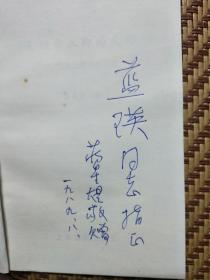 蓝瑛同志指正
蒋星煜敬赠
一九八九、八、